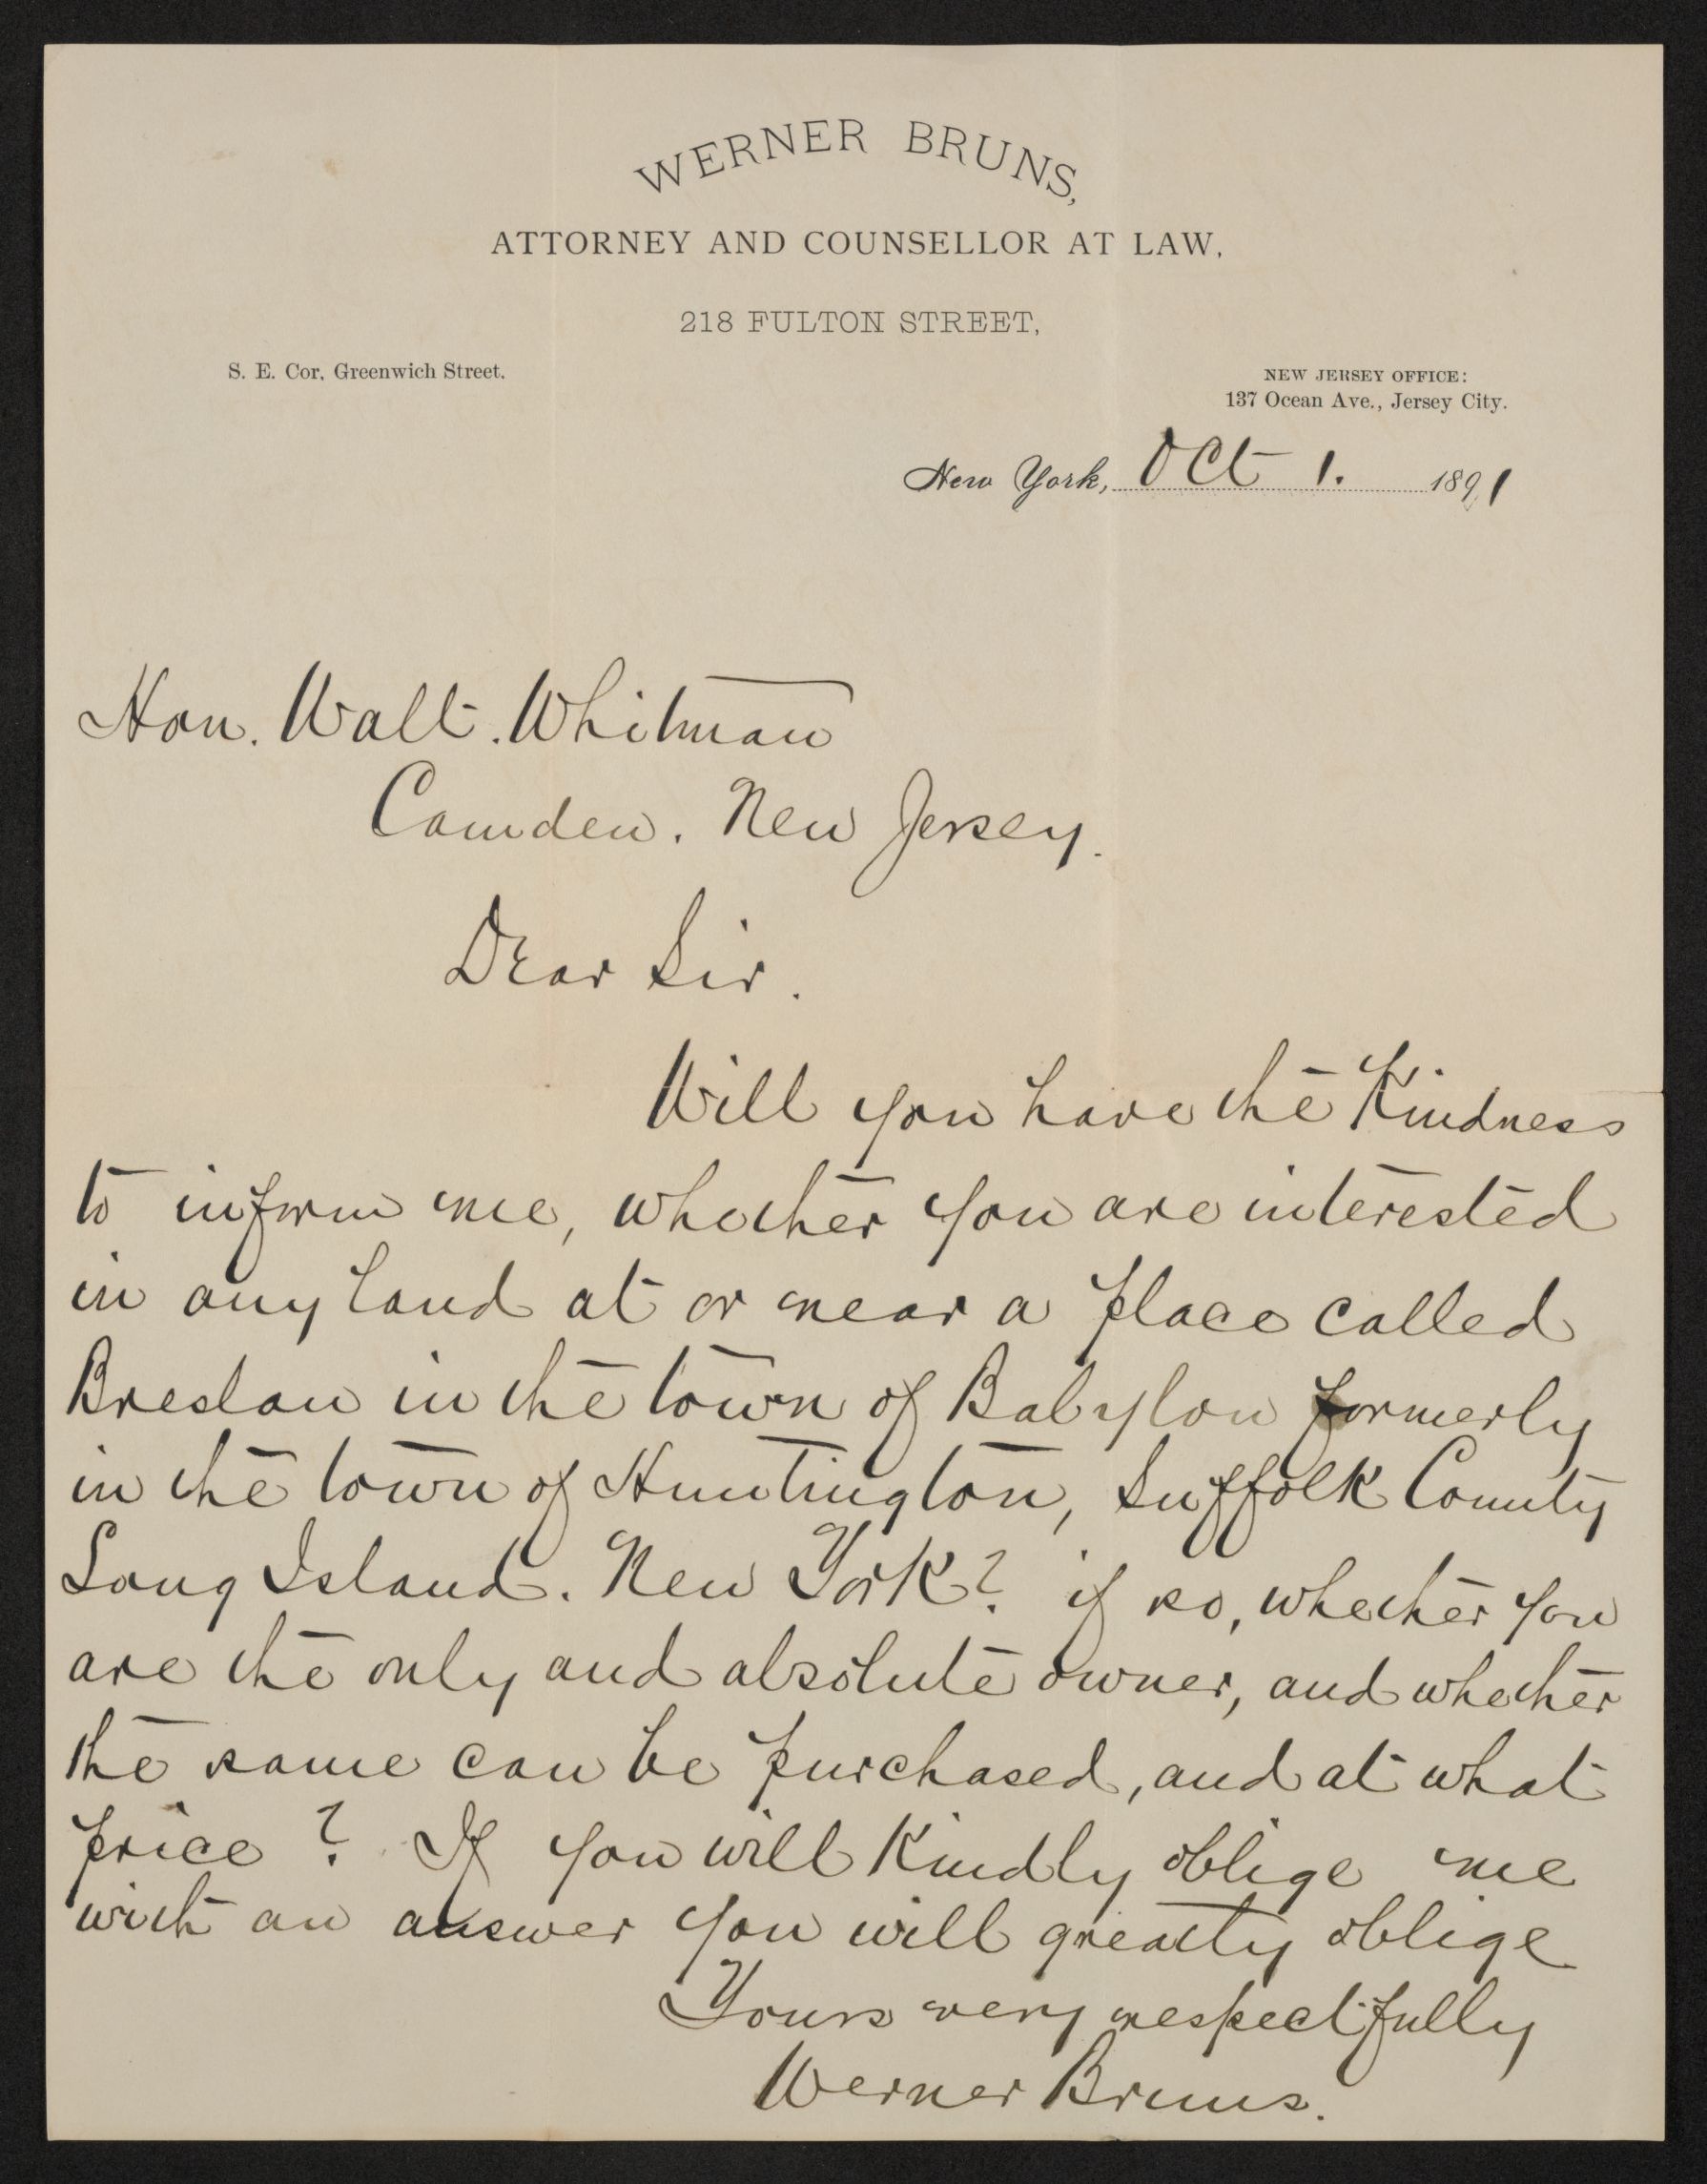 WERNER BRUNS,
ATTORNEY AND COUNSELLOR AT LAW,
218 FULTON STREET,
S. E. Cor. Greenwich Street.
NEW JERSEY OFFICE:
137 Ocean Ave., Jersey City.
New York, Oct 1. 1891
Hon. Walt. Whitman
Camden. New Jersey.
Dear Sir.
Will you have the Kindness
to inform me, whether you are interested
in any land at or near a place called
Breslau in the town of Babylon formerly
in the town of Huntington, Suffolk County
Long Island. New York? if so, whether you
are the only and absolute owner, and whether
the same can be purchased, and at what
price? If you will Kindly oblige me
with an answer you will greatly oblige
Yours very respectfully
Werner Bruns.